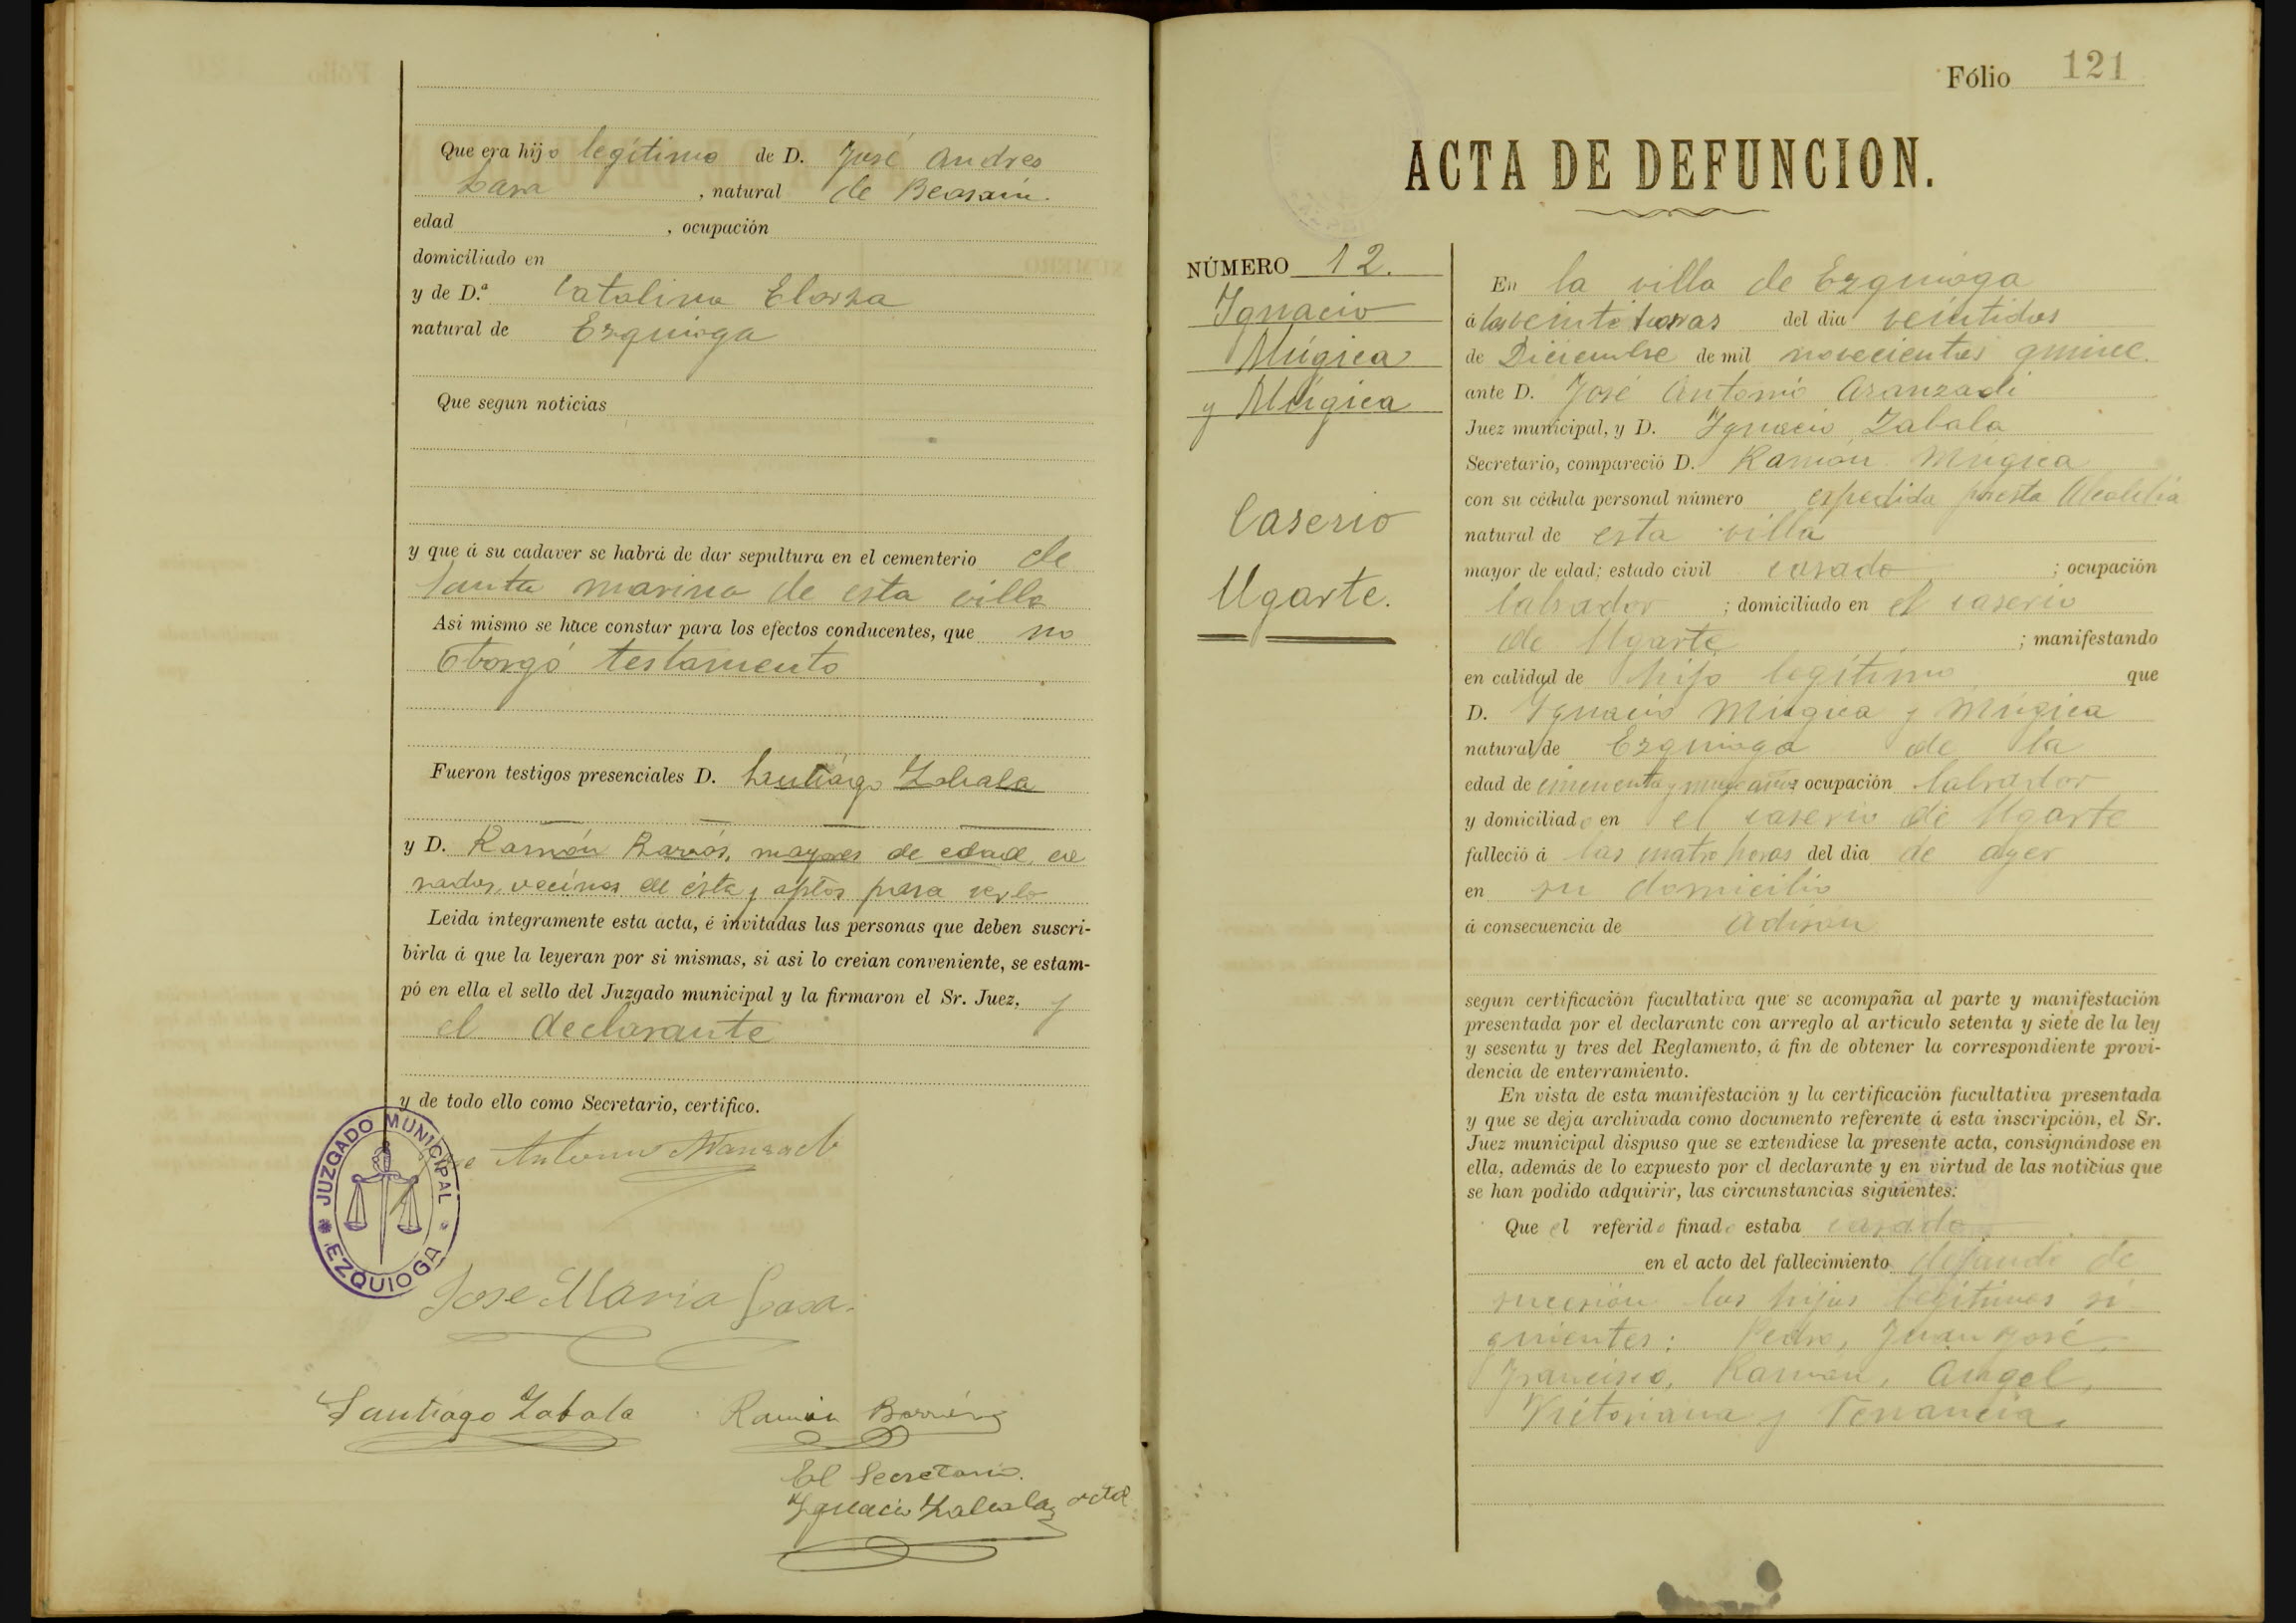 Que era hijo legítimo de D. José Andres
Lasa, natural de Beasain.
edad , ocupación
domiciliado en
y de D.ª Catalina Elorza
natural de Ezquioga
Que segun noticias
y que á su cadaver se habrá de dar sepultura en el cementerio de
Santa marina de esta villa
Asi mismo se hace constar para los efectos conducentes, que no
otorgó testamento
Fueron testigos presenciales D. Santiago Zabala
y D. Ramón Barrios, mayores de edad, ca
sados, vecinos de ésta y aptos para serlo
Leida integramente esta acta, é invitadas las personas que deben suscri-
birla á que la leyeran por si mismas, si asi lo creian conveniente, se estam-
pó en ella el sello del Juzgado municipal y la firmaron el Sr. Juez, y
el declarante
y de todo ello como Secretario, certifico.
JUZGADO MUNICIPAL
EZQUIOGA
Jose Antonio Aranzadi
Jose Maria Lasa.
Santiago Zabala Ramón
El Secretario.
Ignacio Zabala
Fólio 121
ACTA DE DEFUNCION.
NÚMERO 12.
Ignacio
Múgica
y Múgica
Caserio
Ugarte.
En la villa de Ezquioga
á las veinte horas del dia veintidos
de Diciembre de mil novecientos quince.
ante D. José Antonio Aranzadi
Juez municipal, y D. Ignacio Zabala
Secretario, compareció D. Ramón Múgica
con su cédula personal número expedida por esta Alcaldia
natural de esta villa
mayor de edad; estado civil casado ; ocupación
labrador ; domiciliado en el caserio
de Ugarte ; manifestando
en calidad de hijo legítimo que
D. Ignacio Múgica y Múgica
natural de Ezquioga de la
edad de cincuenta y nueve años ocupación labrador
y domiciliado en el caserio de Ugarte
falleció á las cuatro horas del dia de ayer
en su domicilio
á consecuencia de Adison
segun certificación facultativa que se acompaña al parte y manifestación
presentada por el declarante con arreglo al articulo setenta y siete de la ley
y sesenta y tres del Reglamento, á fin de obtener la correspondiente provi-
dencia de enterramiento.
En vista de esta manifestación y la certificación facultativa presentada
y que se deja archivada como documento referente á esta inscripción, el Sr.
Juez municipal dispuso que se extendiese la presente acta, consignándose en
ella, además de lo expuesto por el declarante y en virtud de las noticias que
se han podido adquirir, las circunstancias siguientes:
Que el referido finado estaba casado
en el acto del fallecimiento dejando de
sucesión los hijos legítimos si
guientes: Pedro, Juan José,
Francisco, Ramón, Angel,
Victoriana y Venancia.